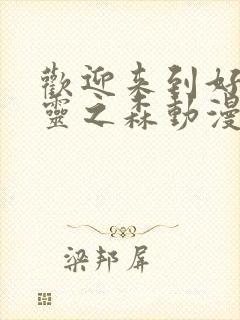 歡迎来到好
靈之森動漫
梁邦屏